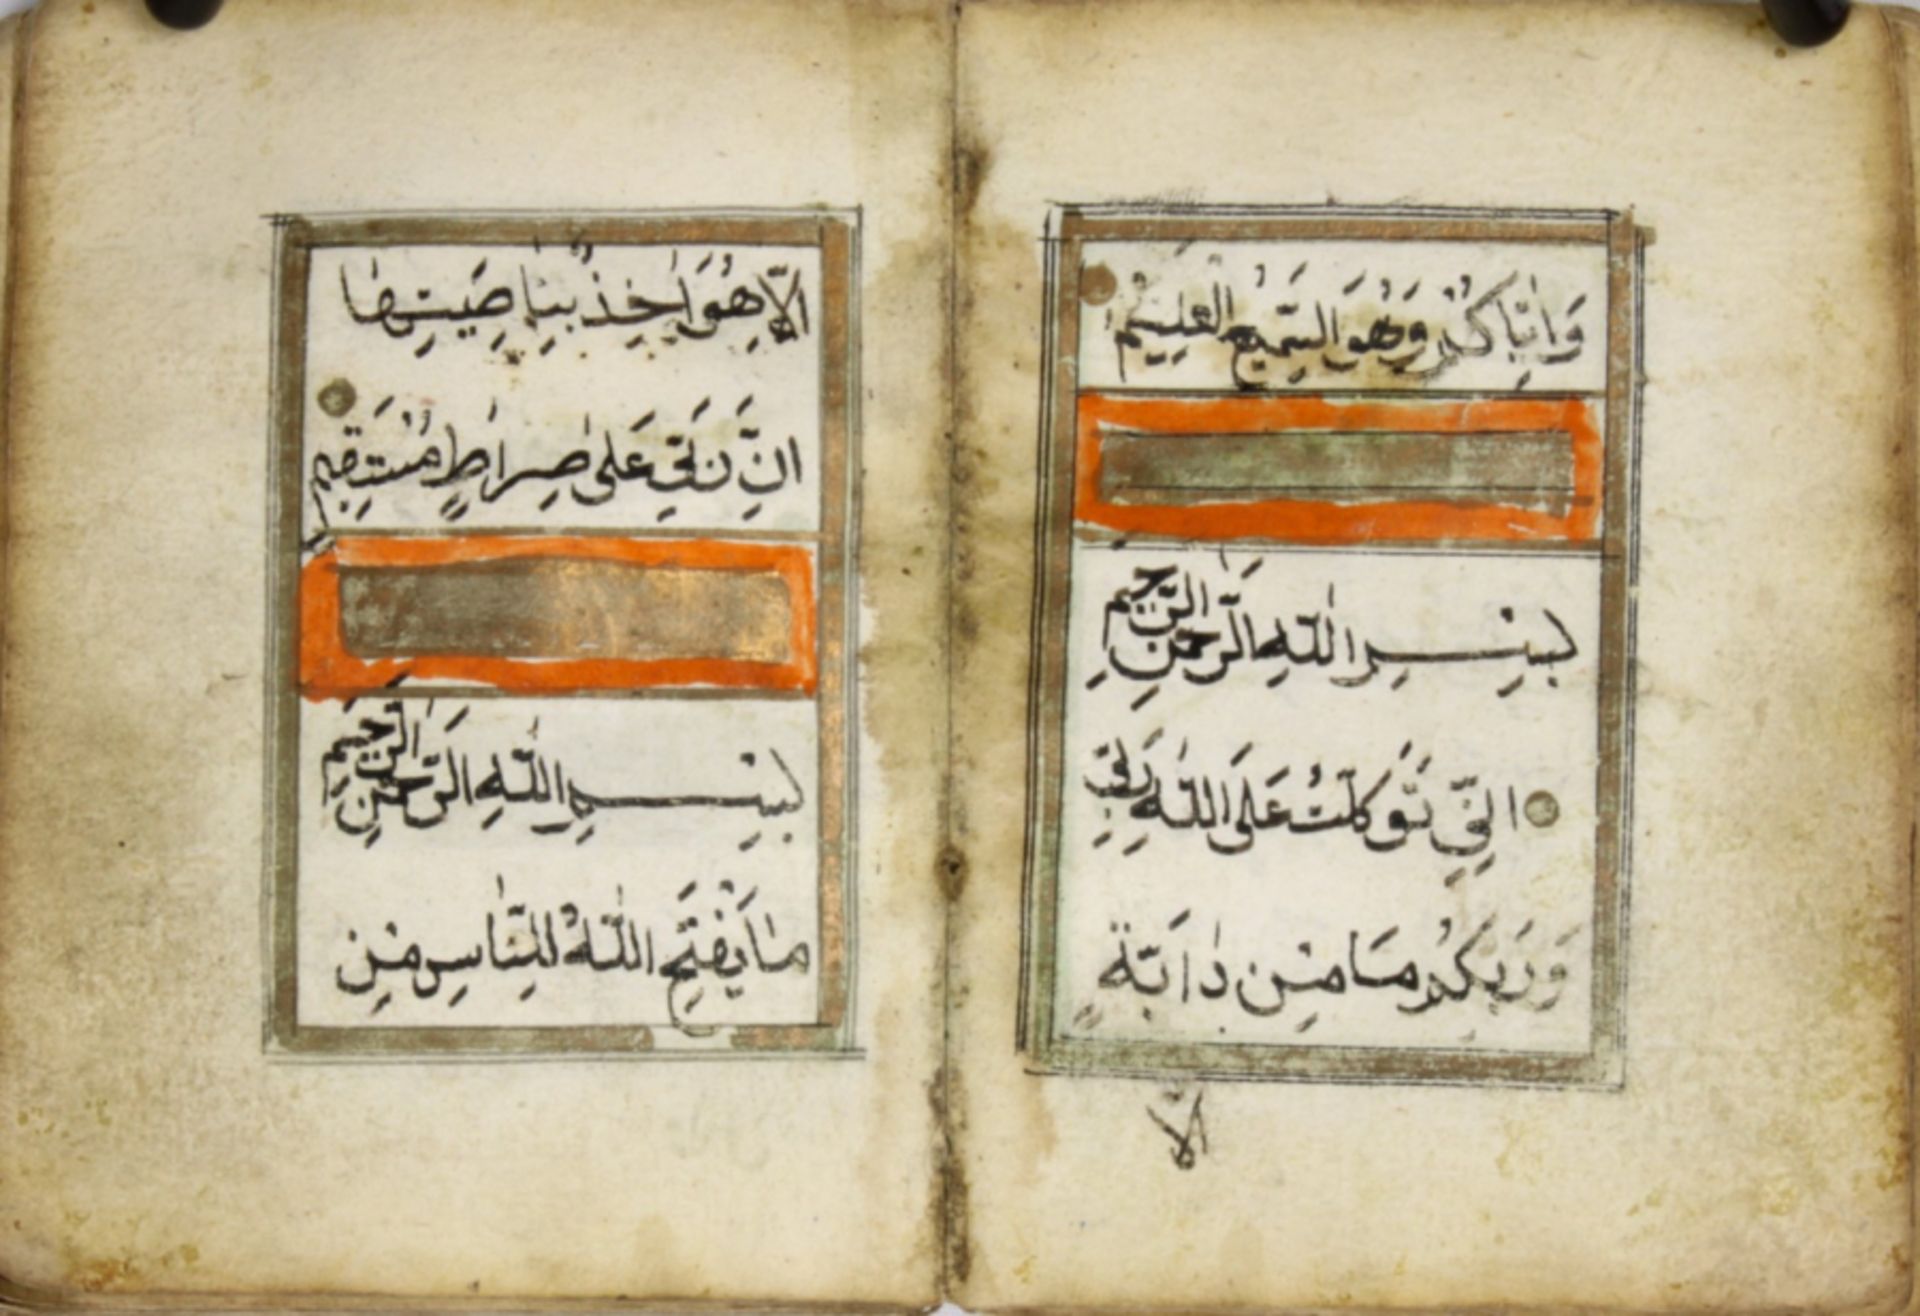 وَاِيَّاكُمْ وَهُوَ السَّمِيْعُ الْعَلِيْمُ
بِسْــــمِ اللّٰهِ الرَّحْمٰنِ الرَّحِيْمِ
اِنِّيْ تَوَكَّلْتُ عَلَى اللّٰهِ رَبِّيْ
وَرَبِّكُمْ مَا مِنْ دَابَّةٍ
اِلَّا
اِلَّا هُوَ اٰخِذٌ بِنَاصِيَتِهَا
اِنَّ رَبِّيْ عَلٰى صِرَاطٍ مُسْتَقِيْمٍ
بِسْــــمِ اللّٰهِ الرَّحْمٰنِ الرَّحِيْمِ
مَا يَفْتَحِ اللّٰهُ لِلنَّاسِ مِنْ